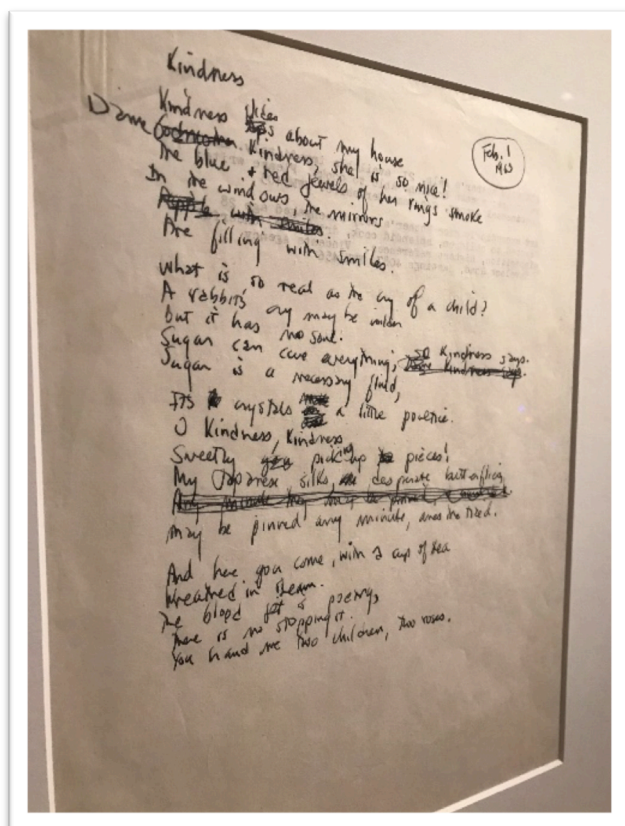 Kindness
Feb. 1
1963
Kindness glides about my house
Dame Kindness, she is so nice!
The blue & red jewels of her rings smoke
In the windows, the mirrors
Are filling with smiles.
What is so real as the cry of a child?
A rabbit's cry may be wilder
But it has no soul.
Sugar can cure everything, so Kindness says.
Sugar is a necessary fluid,
Its crystals a little poultice.
O Kindness, Kindness
Sweetly picking up pieces!
My Japanese silks, desperate butterflies
may be pinned any minute, anesthetized.
And here you come, with a cup of tea
Wreathed in steam.
The blood jet is poetry,
There is no stopping it.
You hand me two children, two roses.